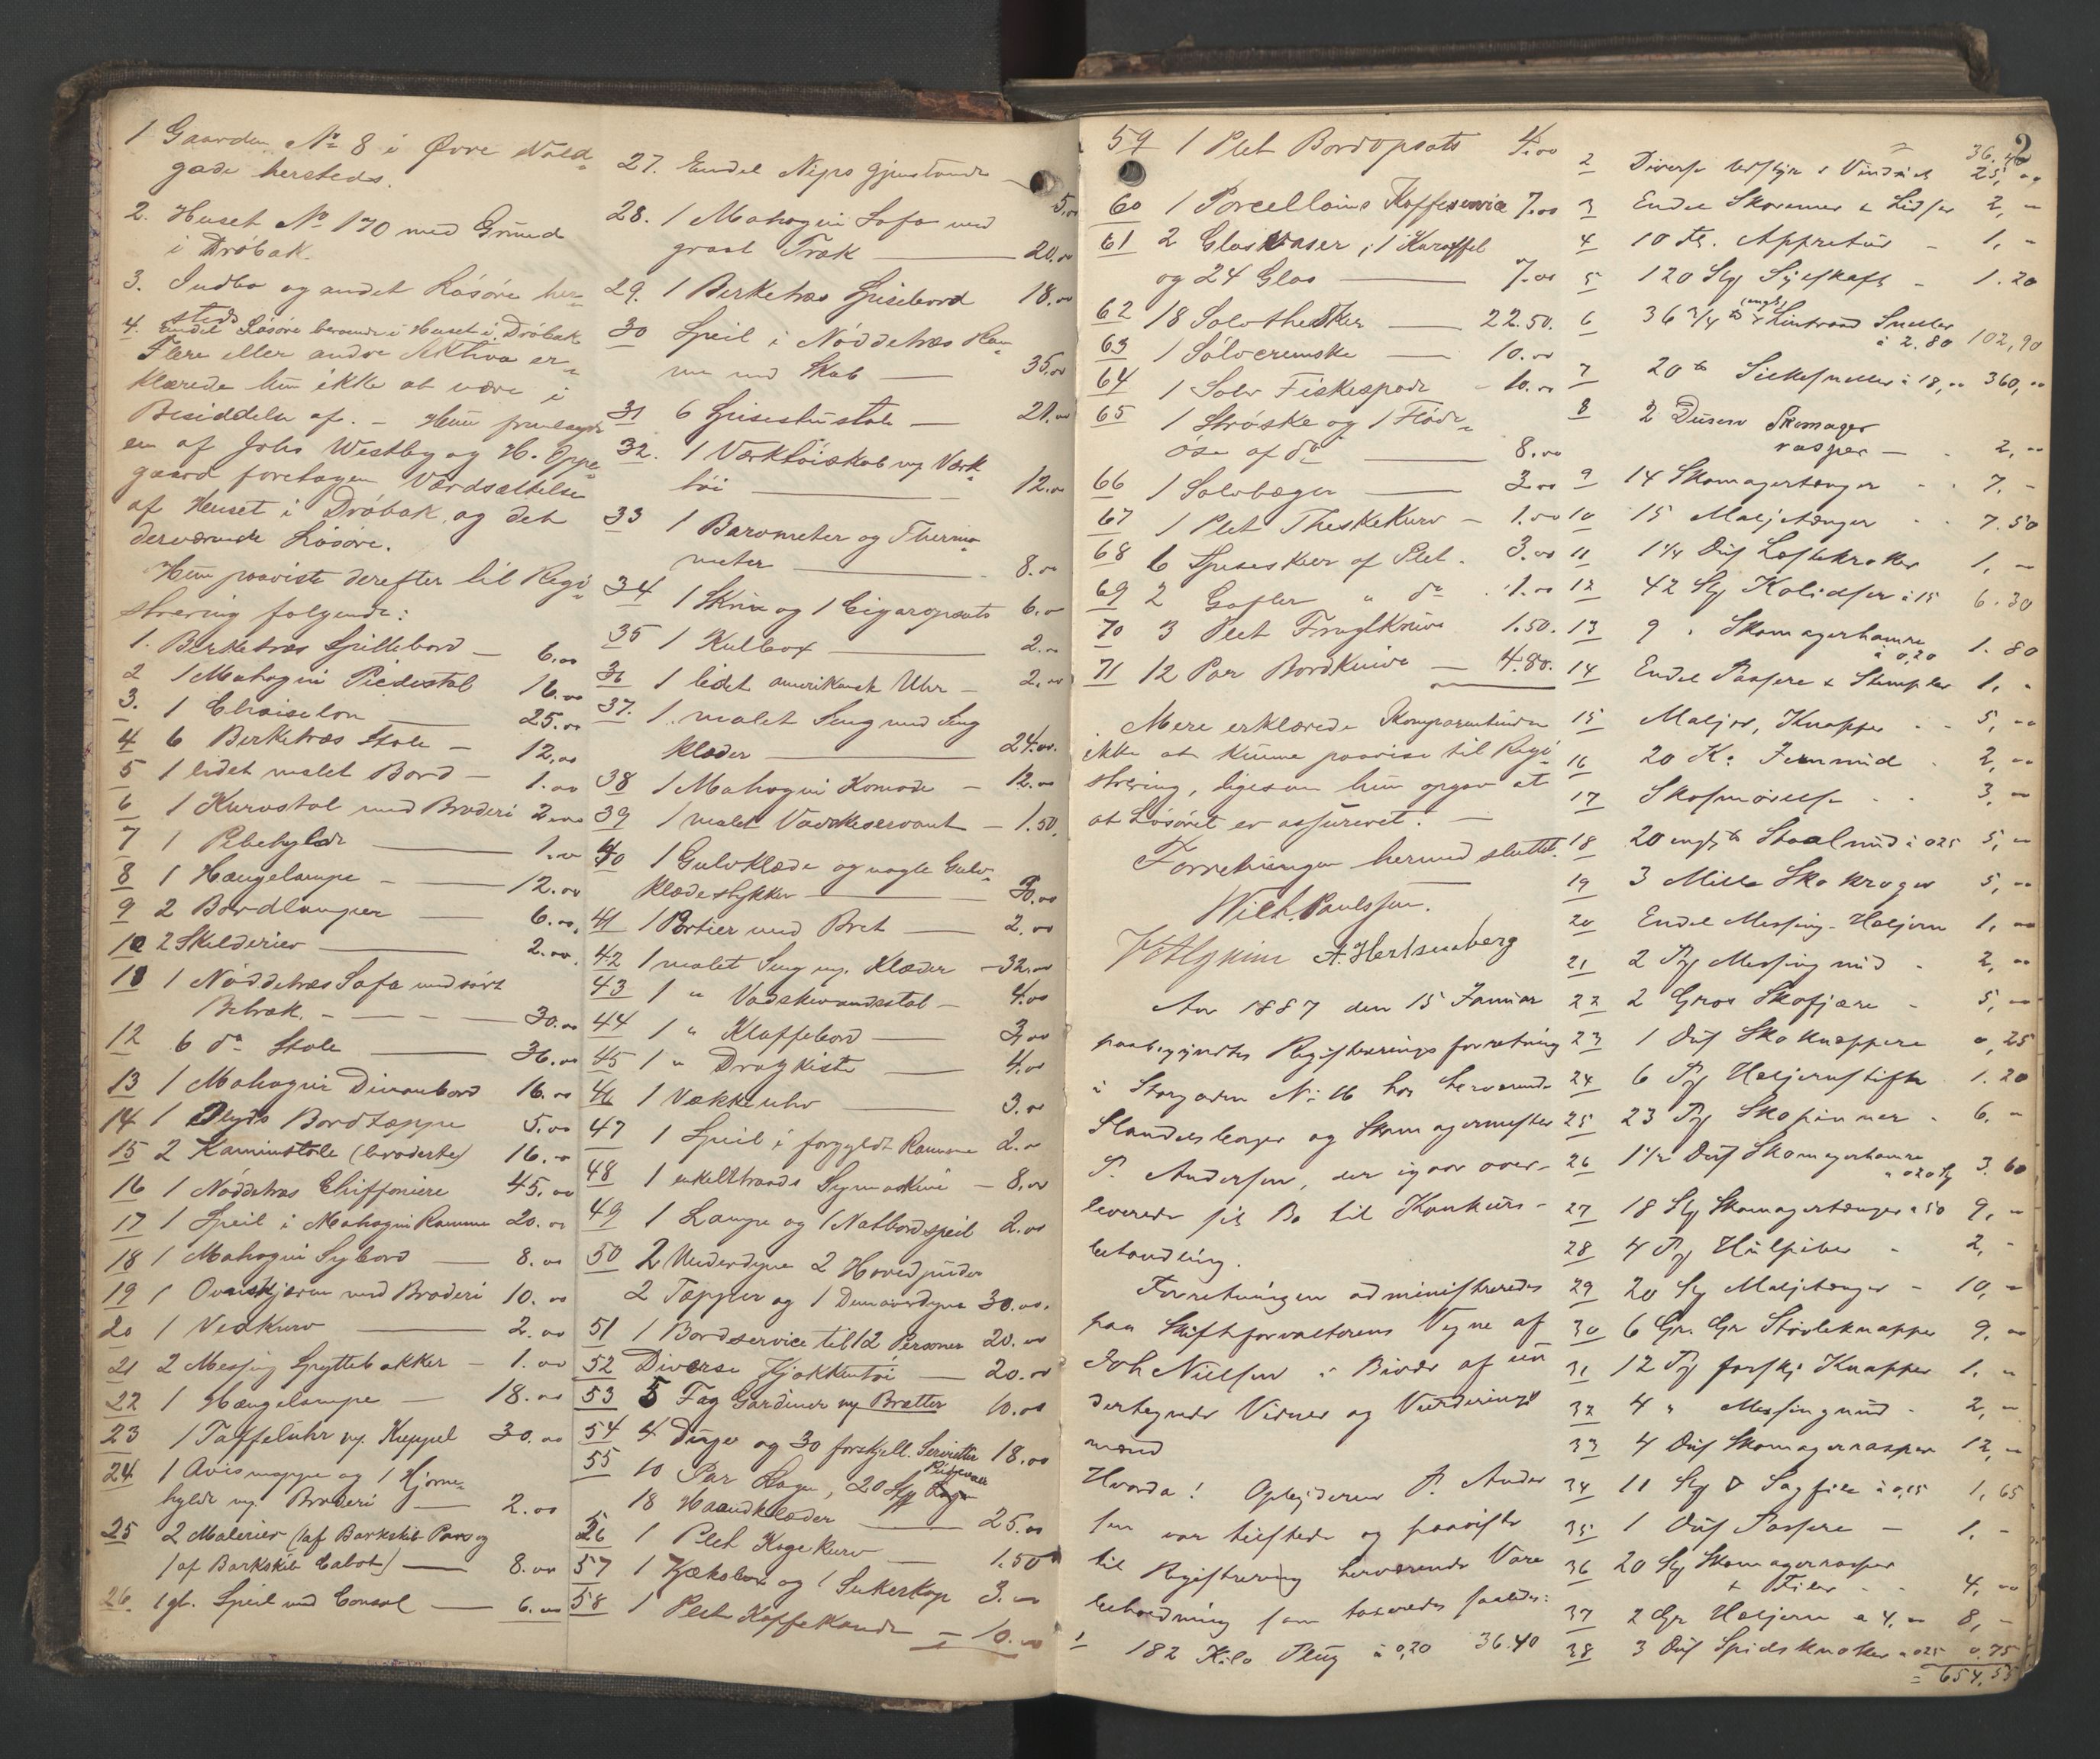 1 Gaarden No 8 i Øvre Vold-
gade hersteds.
2. Huset No 170 med Grund
i Drøbak.
3. Indbo og andet Løsøre her-
steds
4. Endel Løsøre beroende i Huset i Drøbak
Flere eller andre Aktiva er-
klærede hun ikke at være i
Besiddelse af. – Hun fremlagde
en af Johs Westby og H. Oppe-
gaard foretagen Værdsættelse
af Huset i Drøbak, og det
derværende Løsøre.
Hun paaviste derefter til Regi-
strering følgende:
1. Birketræs Spillebord – 6.00
2 1 Mahogni Piedestal 16.00
3. 1 Chaiselon 25.00
4 6 Birketræs Stole – 12,00
5 1 lidet malet Bord – 1.00
6 1 Kurvstol med Broderi 2.00
7 1 Pibehylde 1.00
8 1 Hængelampe – 12.00
9 2 Bordlamper 6.00
10 2 Skilderier 2.00
11 1 Nøddetræs Sofa med sort
Betræk. – 30.00
12 6 do Stole 36.00
13 1 Mahogni Divanbord 16.00
14 1 Plyds Bordtæppe 5.00
15 2 Kaminstole (broderte) 16.00
16 1 Nøddetræs Chiffoniere 45.00
17 1 Speil i Mahogni Ramme 20.00
18 1 Mahogni Sybord 8.00
19 1 Ovnskjærm med Broderi 10.00
20 1 Vedkurv 2.00
21 2 Messing Spyttebakker – 1.00
22 1 Hængelampe – 18.00
23 1 Taffeluhr m. Kuppel 30.00
24 1 Avismappe og 1 Hjørne-
hylde m. Broderi 2.00
25 2 Malerier (1 af Barkskib Pars og
1 af Barkskib Cabot) 8.00
26. 1 gl. Speil med Consol 6.00
27. Endel Nips gjenstande
5.00
28. 1 Mahogni Sofa med
graat Træk 20.00
29. 1 Birketræs Spisebord 18.00
30 Speil i Nøddetræs Ram-
me med Skab 35.00
31 6 Spisestustole – 21.00
32. 1 Værktøiskab m. Værk-
tøi 12.00
33 1 Barometer og Thermo-
meter 8.00
34 1 Skrin og 1 Cigaropsats 6.00
35 1 Kulbox 2.00
36 1 lidet amerikansk Uhr – 2.00
37. 1 malet Seng med Seng
klæder 24.00
38 1 Mahogni Komode – 12.00
39 1 malet Vaskeservant – 1.50.
40 1 Gulvklæde og nogle Gulv-
klædestykker 3.00
41 1 Portier med Bret 2.00
42 1 malet Seng m. Klæder – 32.00
43 1 " Vaskevandsstol – 4.00
44 1 " Klaffebord 3.00
45 1 " Dragkiste 4.00
46 1 Vækkeuhr 3.00
47 1 Speil i forgyldt Ramme 2.00
48 1 enkelttraads Symaskine – 8.00
49 1 Lampe og 1 Natbordspeil 2.00
50 2 Underdyner 2 Hovedpuder
2 Tæpper og 1 Dunoverdyne 30.00.
51 1 Bordservice til 12 Personer 20.00
52 Diverse Kjøkkentøi – 20.00
53 5 Fag Gardiner m Brætter 10.00
54 4 Duger og 30 forskjell. Servietter 18.00
55 10 Par Lagen, 20 Stk Pudevaar
18 Haandklæder 25.00
56 1 Plet Kagekurv – 1.50
57 1 Kjæksbox og 1 Sukkerkop 3.00
58 1 Plet Kaffekande = 10.00
2
59 1 Plet Bordopsats 4.00
60 1 Porcellains Kaffeservice 7.00
61 2 Glasvaser, 1 Karaffel
og 24 Glas 7.00
62 18 Sølvtheskeer 22.50.
63 1 Sølvcremske 10.00
64 1 Sølv Fiskespade – 10.00
65 1 Strøske og 1 Fløde-
øse af do 8.00
66 1 Sølvbæger 3.00
67 1 Plet TheskeKurv – 1.00
68 6 Spiseskeer af Plet. 3.00
69 2 Gafler " do . 1.00
70 3 Plet FrugtKnive 1.50.
71 12 Par BordKnive 4.80.
Mere erklærede Komparentinden
ikke at kunne paavise til Regi-
strering, ligesom hun opgav at
at Løsøret er assureret. –
Forretningen hermed sluttet.
Wilh. Paulssen.
A. Hertzenberg
Aar 1887 den 15 Januar
paabegyndtes Registreringsforretning
i Storgaden No 16 hos herværende
Handelsborger og Skomagermester
P. Andersen, der igaar over-
leverede sit Bo til Konkurs-
behandling.
Forretningen administreredes
paa Skifteforvalterens Vegne af
Joh Nielsen i Biværelse af un
dertegnede Vidner og Vurderings
mænd
Hvorda! Opbyderen P. Ander
sen var tilstede og paaviste
til Registrering herværende Vare
beholdning som taxeredes saaledes:
1 182 Kilo Plug à 0,20 36.40
36.40
2 Diverse i Vinduet 25,00
3 Endel Skoremer & Lidser 2, –
4 10 Fl. Appretur – 1, –
5 120 Stk Sylskaft – 1.20
6 36 3/4 ℔ (engl) Lintraad Sneller
à 2.80 102,90
7 20 ℔ Silkesneller à 18,00 360,00
8 2 Dusin Skomager
rasper – 2,00
9 14 Skomagertænger 7. –
10 15 Maljetænger 7.50
11 1 1/4 Dus Læstekroker 1, –
12 42 Stk Kolidser à 15 6.30
13 9 " Skomagerhamre
à 0,20 1.80
14 Endel Passere & Stempler 1, –
15 Maljer, Knapper 5,00
16 20 Ko Jernnud 2,00
17 Skosmørelse 3,00
18 20 engl ℔ Staalnud à 025 5,00
19 3 Mille Sko kroger 5,00
20 Endel Messing-Hæljern 1,00
21 2 Pk Messingnud – 2,00
22 2 Gros Skofjære – 5,00
23 1 Dus Sko knæppere 0,25
24 6 Pk Hæljernstifter 1.20
25 23 Pk Skopinner – 6. –
26 1 1/2 Dus Skomagerhamre
à 020 Stk 3.60
27 18 Stk Skomagertænger à 50 9, –
28 4 Pk Hulpiber – 2, –
29 20 Stk Maljetænger – 10, –
30 6 Gr. Gr Støvleknapper 9.00
31 12 Pk forskj Knapper 1. –
32 4 " Messingnud – 2,00
33 4 Dus Skomagerrasper 12,00
34 11 Stk Sagfile à 0,15 1,65
35 1 Dus Passere – 1. –
36 20 Stk Skomagerrasper
& Filer 4,00
37 2 Gr Hæljern a 4,00 8, –
38 3 Dus Spidsknoker à 025 0.75
= 654,55